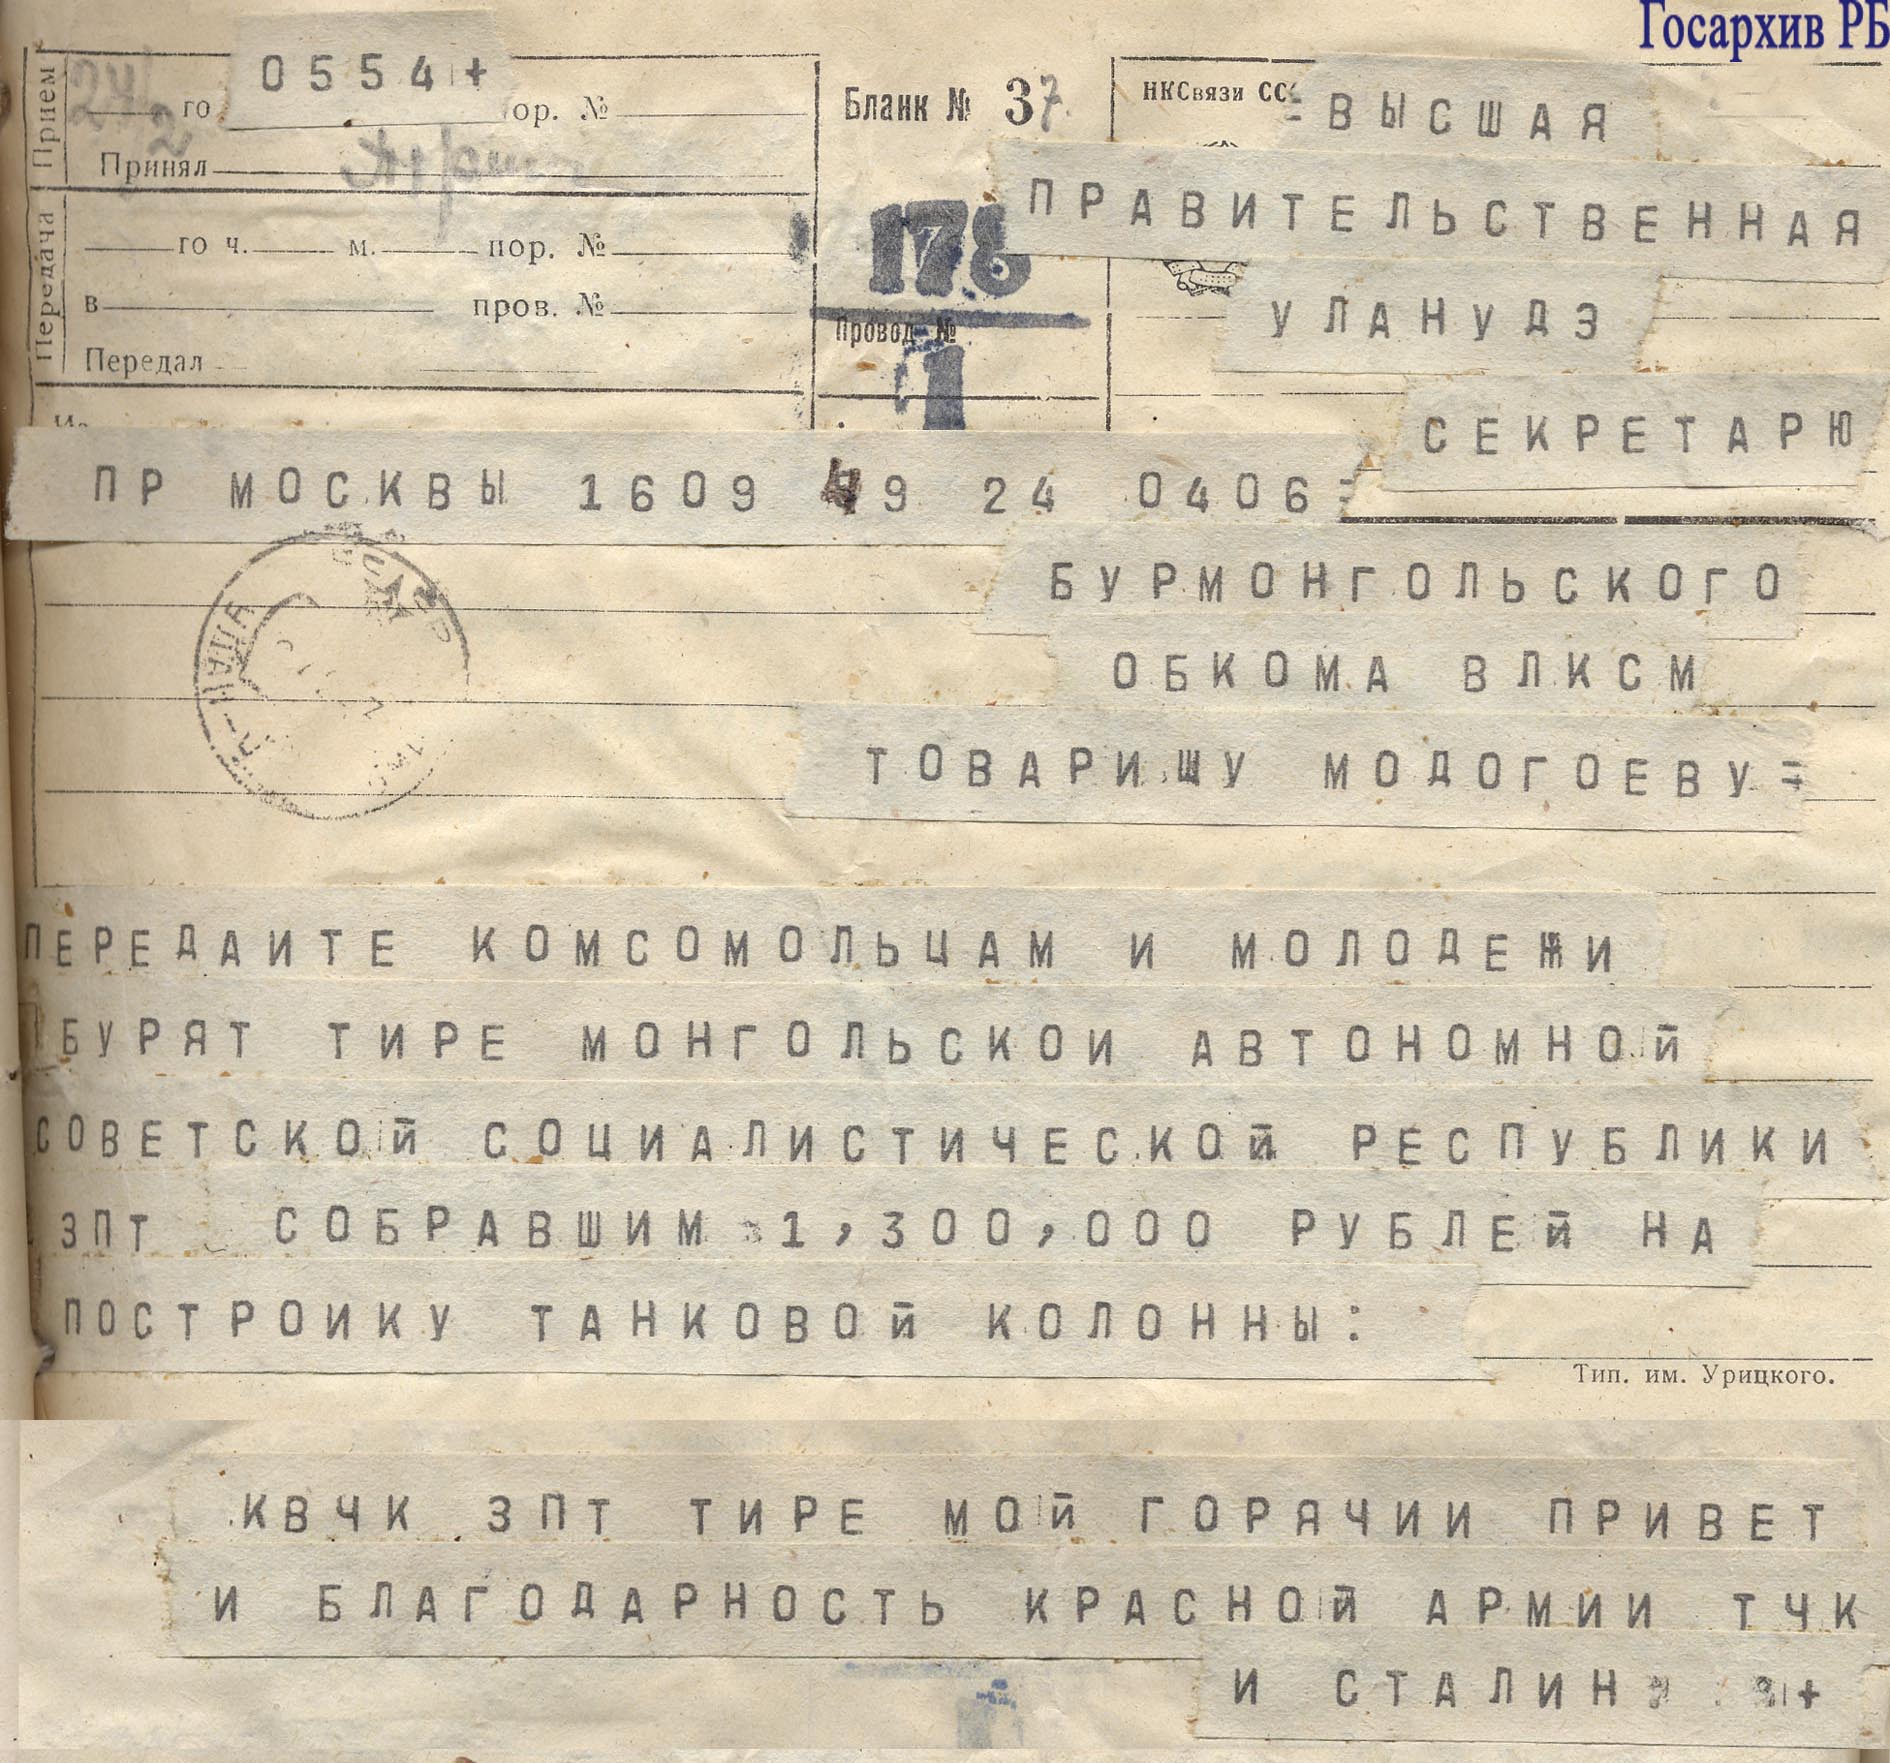 Госархив РБ
Прием
0554+
го
ор. №
Принял
Передача
го ч. м. пор. №
в пров. №
Передал
Бланк № 37
178
Провод №
1
НКСвязи СС
=ВЫСШАЯ
ПРАВИТЕЛЬСТВЕННАЯ
УЛАНУДЭ
СЕКРЕТАРЮ
ПР МОСКВЫ 1609 49 24 0406=
БУРМОНГОЛЬСКОГО
ОБКОМА ВЛКСМ
ТОВАРИЩУ МОДОГОЕВУ=
ПЕРЕДАИТЕ КОМСОМОЛЬЦАМ И МОЛОДЕЖИ
БУРЯТ ТИРЕ МОНГОЛЬСКОИ АВТОНОМНОЙ
СОВЕТСКОЙ СОЦИАЛИСТИЧЕСКОЙ РЕСПУБЛИКИ
ЗПТ СОБРАВШИМ 1,300,000 РУБЛЕЙ НА
ПОСТРОИКУ ТАНКОВОЙ КОЛОННЫ:
Тип. им. Урицкого.
КВЧК ЗПТ ТИРЕ МОЙ ГОРЯЧИИ ПРИВЕТ
И БЛАГОДАРНОСТЬ КРАСНОЙ АРМИИ ТЧК
И СТАЛИН +